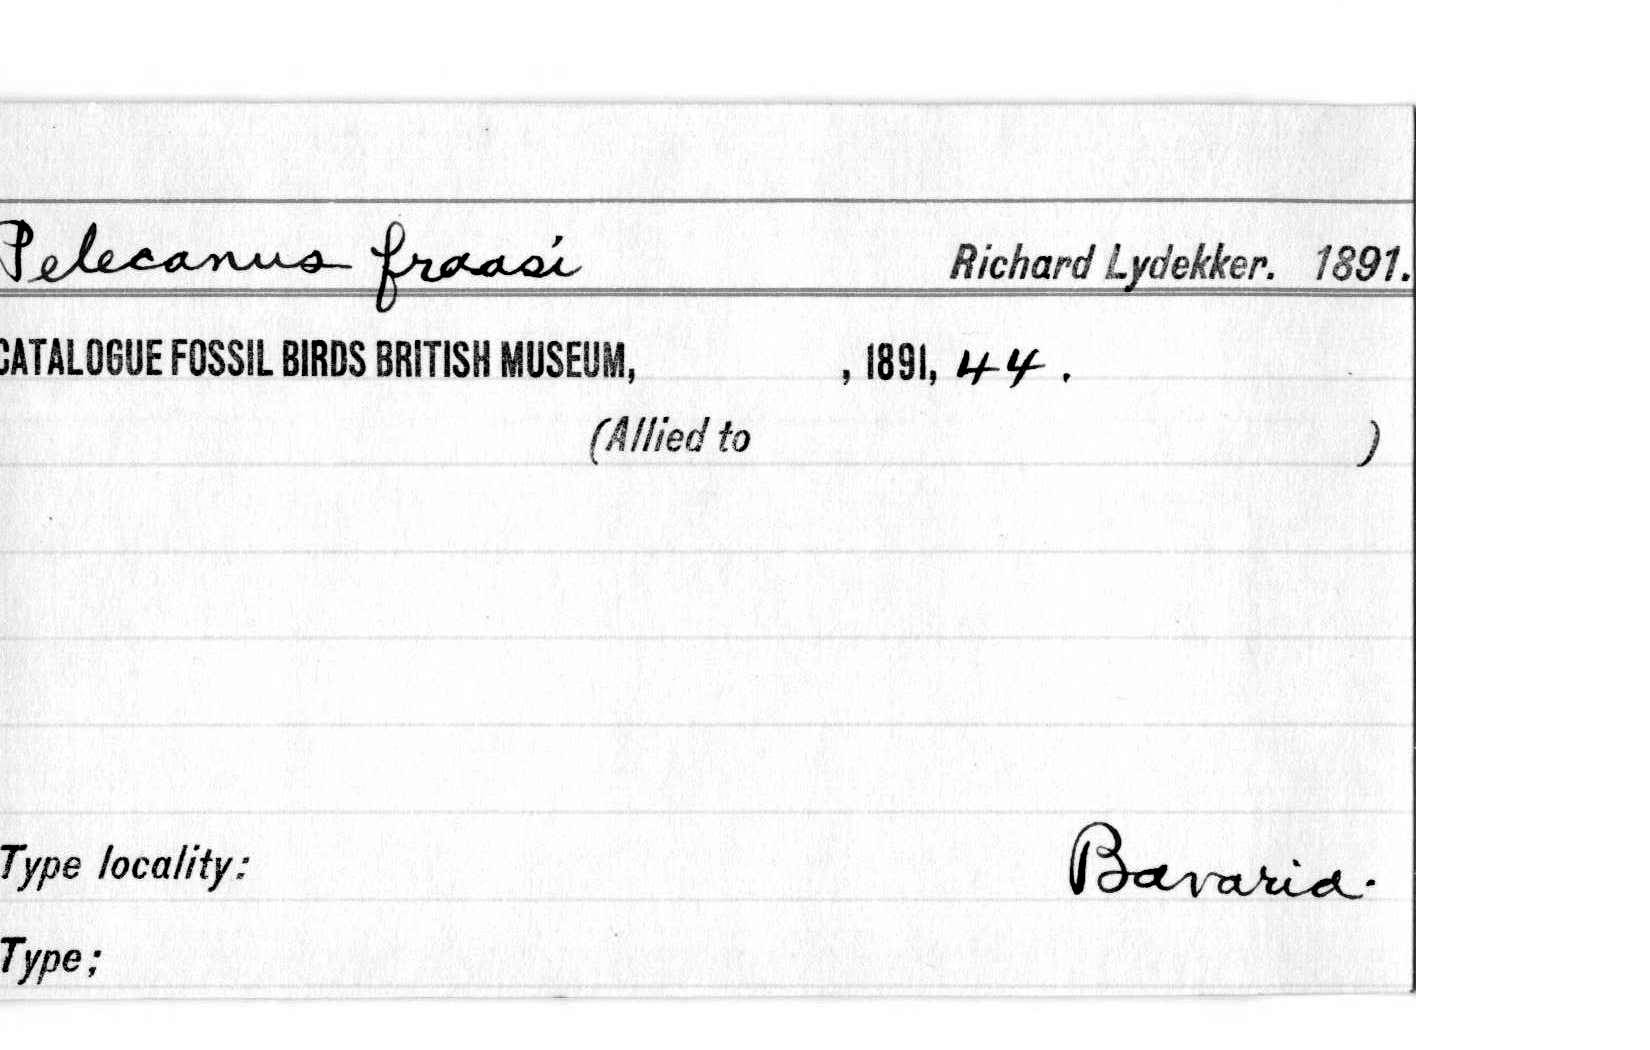 Pelecanus fraasi Richard Lydekker. 1891.
CATALOGUE FOSSIL BIRDS BRITISH MUSEUM, , 1891, 44.
(Allied to )
Type locality: Bavaria.
Type;